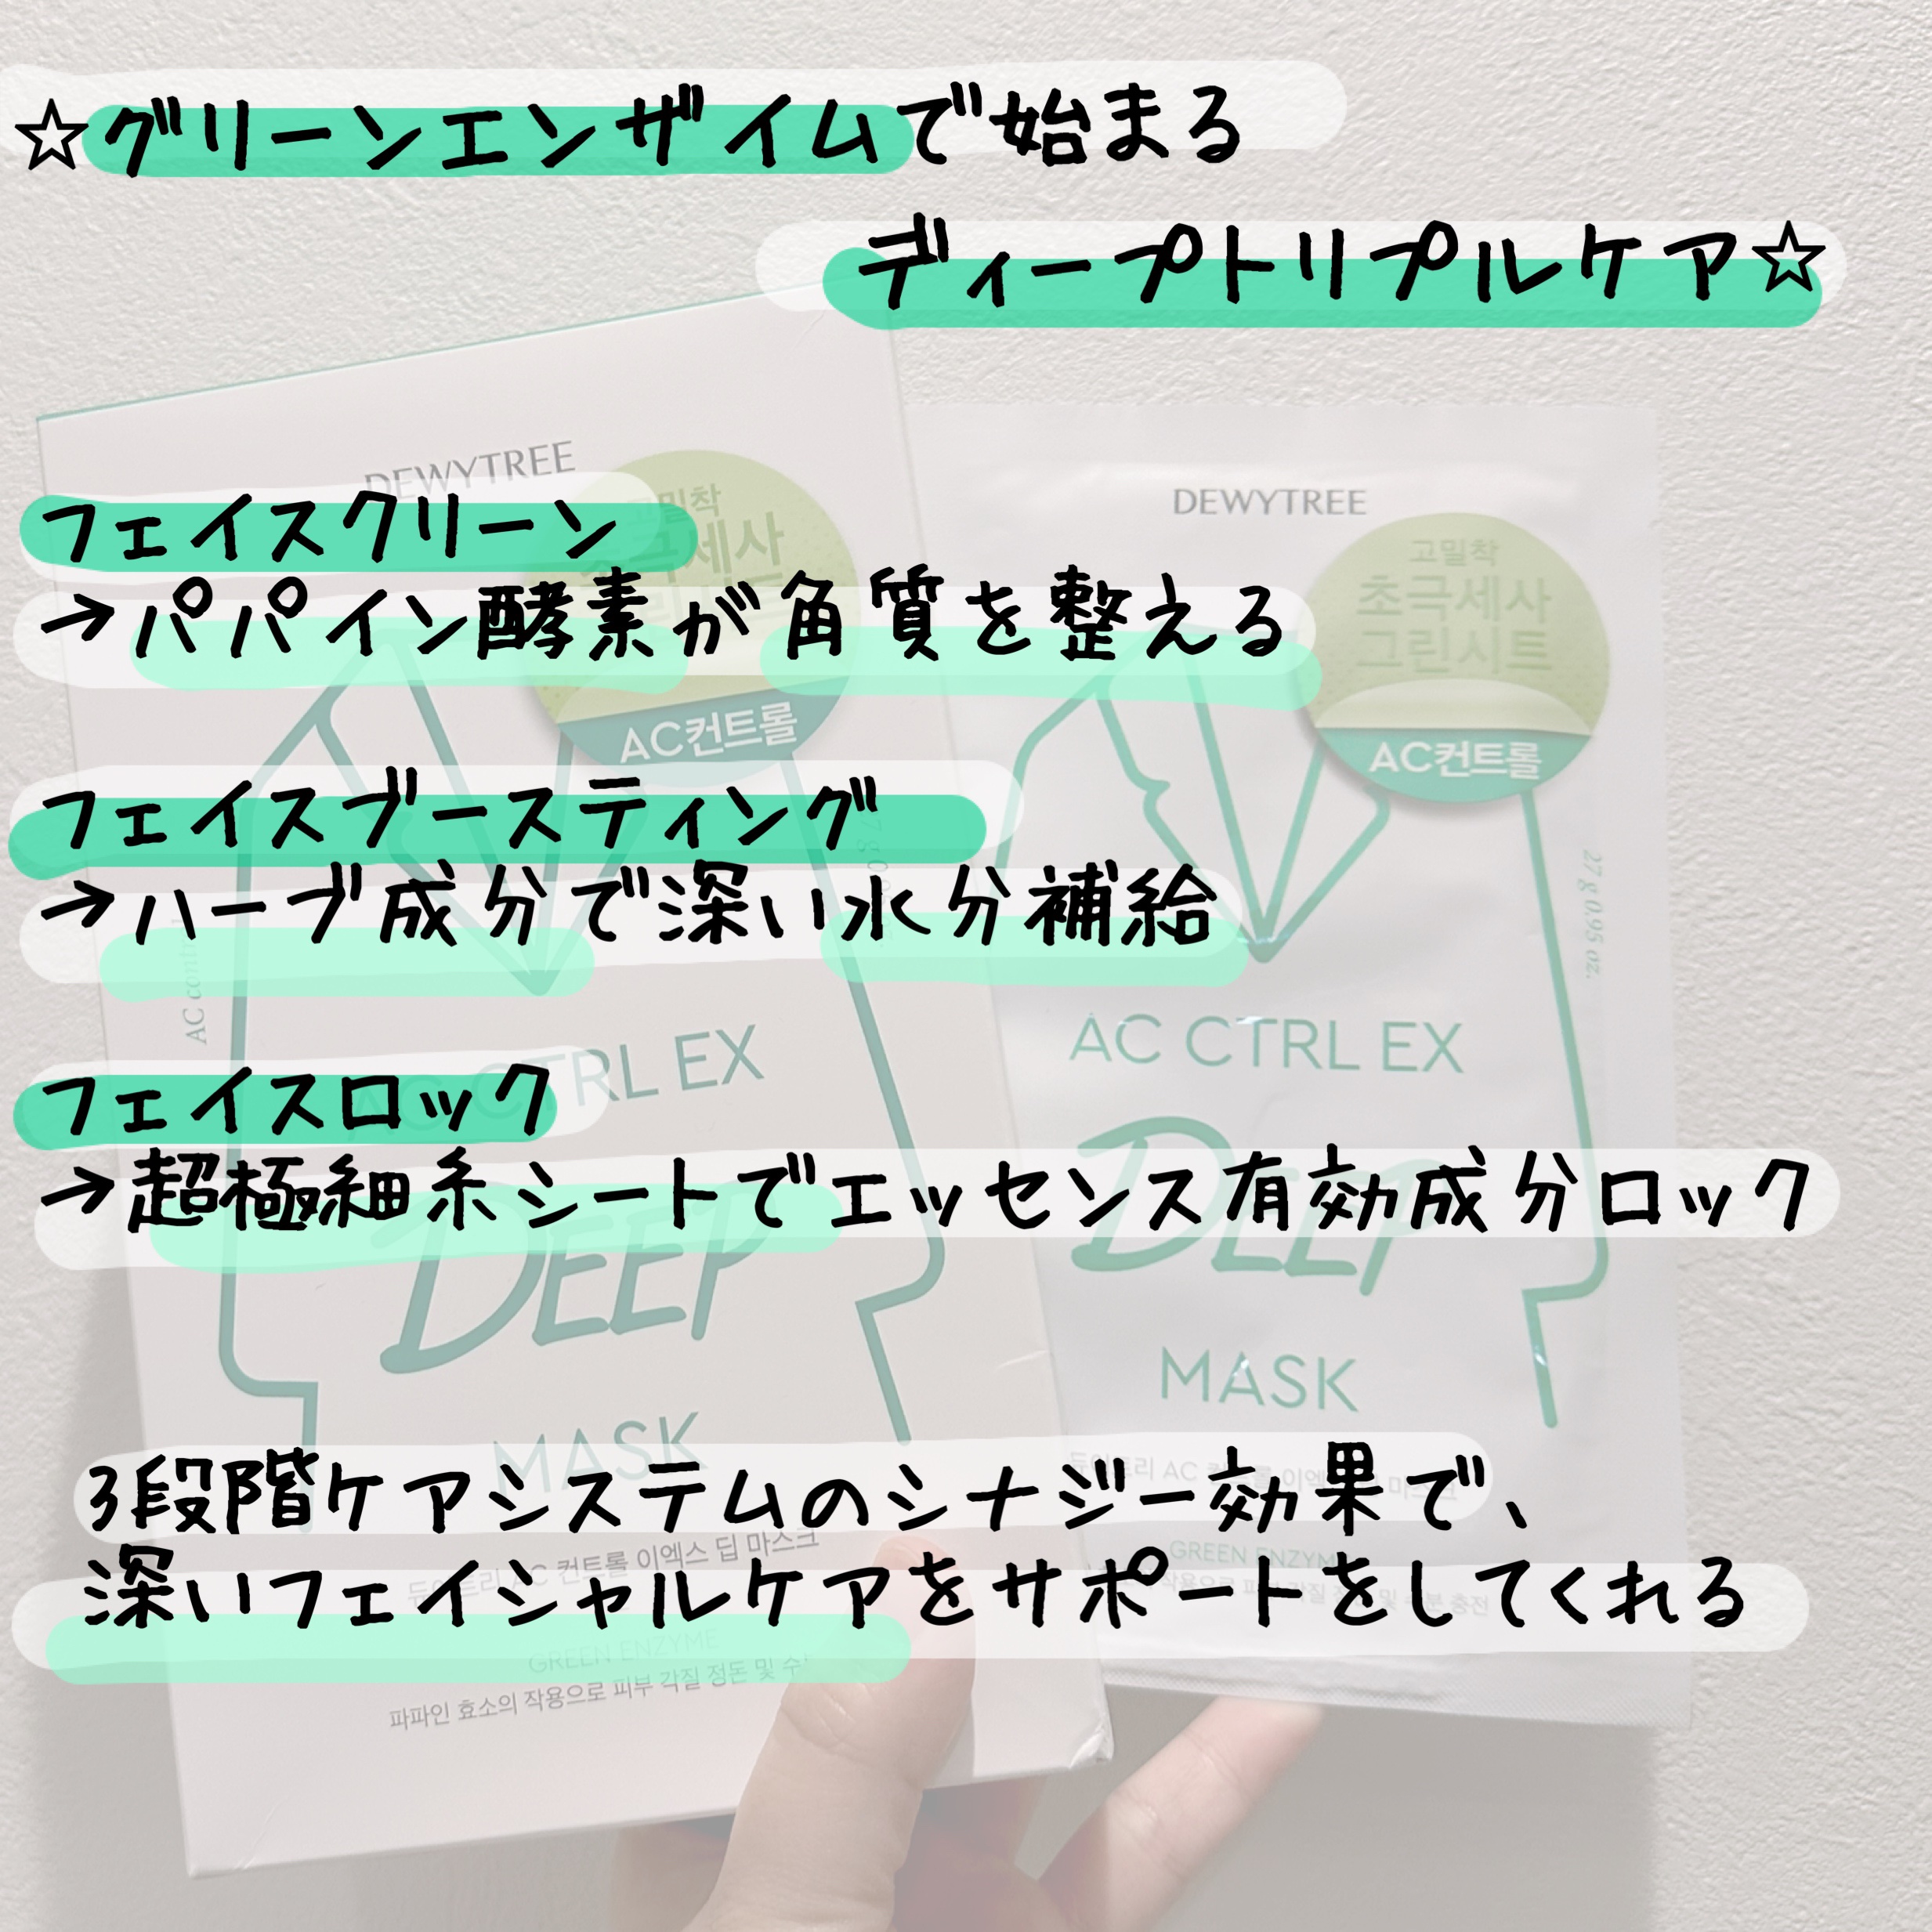 ☆グリーンエンザイムで始まる
ディープトリプルケア☆
DEWYTREE
고밀착
초극세사
AC컨트롤
DEWYTREE
고밀착
초극세사
그린시트
AC컨트롤
フェイスクリーン
→パパイン酵素が角質を整える
フェイスブースティング
→ハーブ成分で深い水分補給
27 g 0.95 oz.
AC CTRL EX
AC CTRL EX
フェイスロック
→超極細糸シートでエッセンス有効成分ロック
DEEP
MASK
DEEP
MASK
3段階ケアシステムのシナジー効果で、
深いフェイシャルケアをサポートをしてくれる
듀이트리 AC 컨트롤 이엑스 딥 마스크
GREEN ENZYME
파파인 효소의 작용으로 피부 각질 정돈 및
GREEN ENZYME